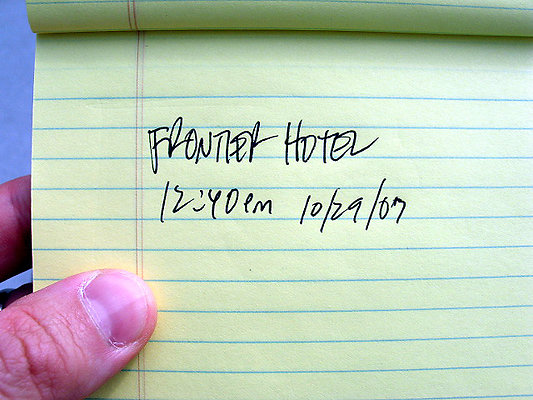 FRONTIER HOTEL
12:40 pm 10/29/07